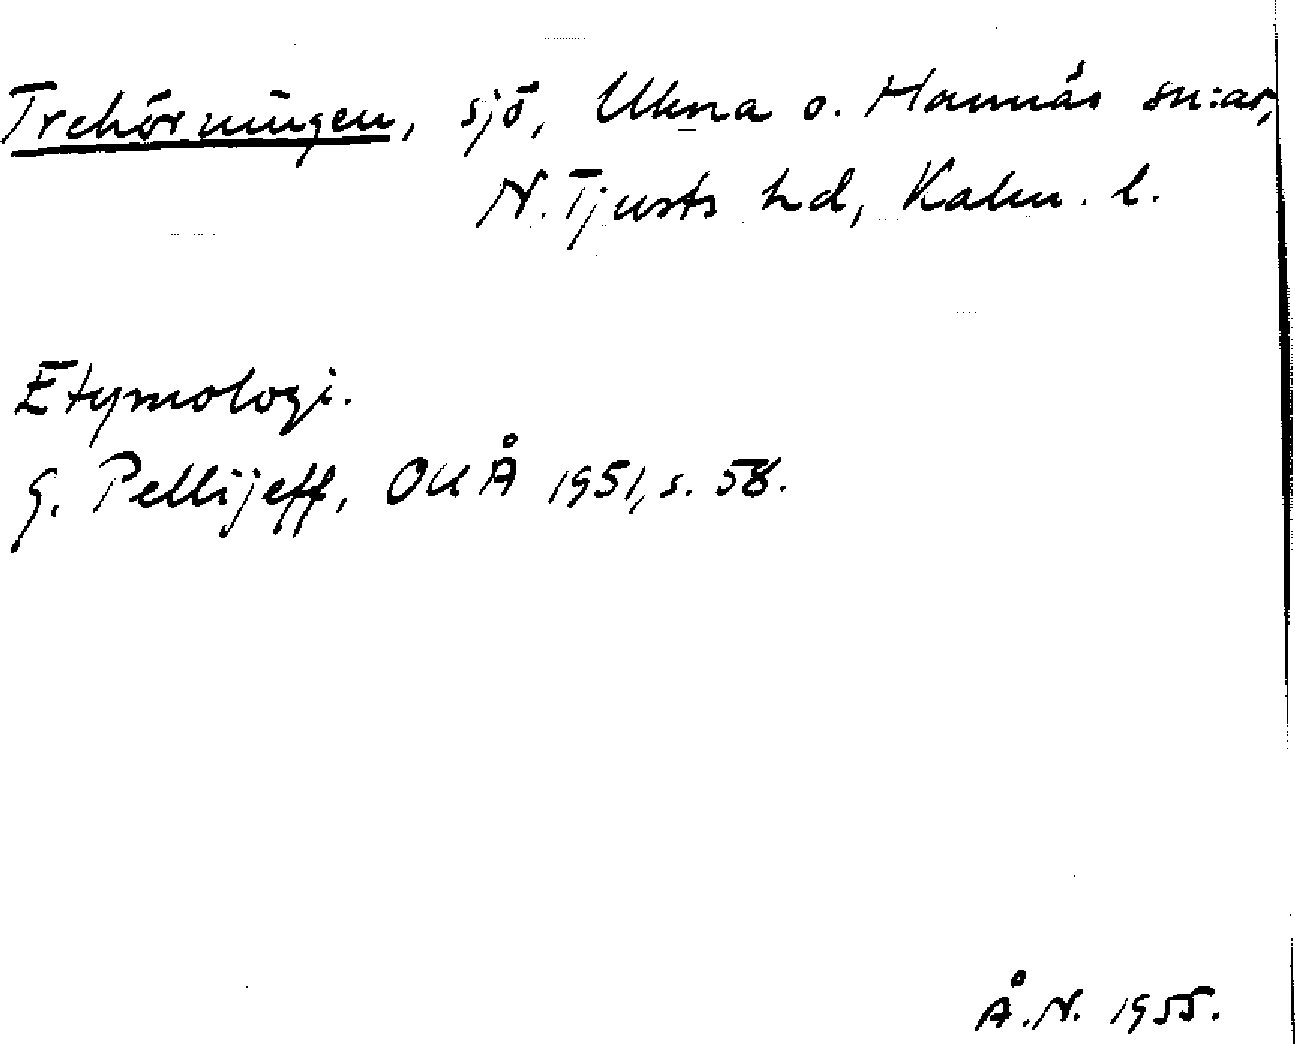 Trehörningen, sjö, Ukna o. Hannäs sn:ar,
N. Tjusts hd, Kalm. l.
Etymologi.
G. Pellijeff, OUÅ 1951, s. 58.
Å.N. 1955.